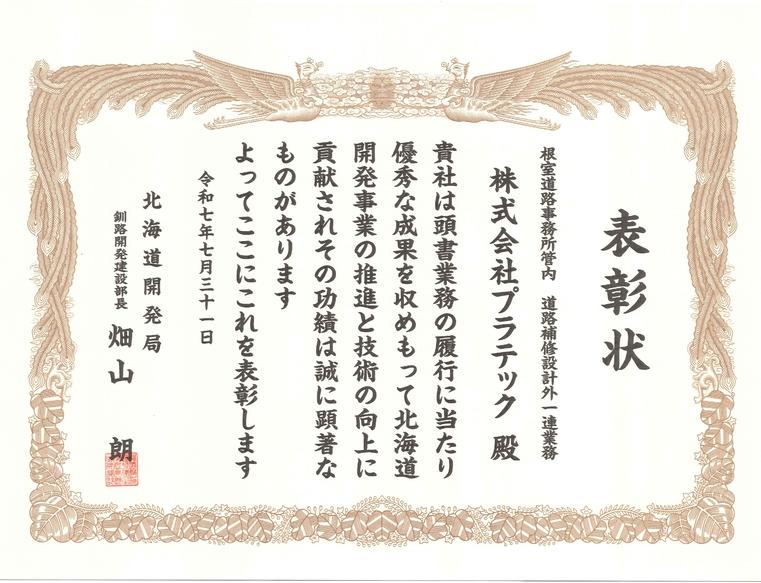 表彰状
根室道路事務所管内　道路補修設計外一連業務
株式会社プラテック　殿
貴社は頭書業務の履行に当たり
優秀な成果を収めもって北海道
開発事業の推進と技術の向上に
貢献されその功績は誠に顕著な
ものがあります
よってここにこれを表彰します
令和七年七月三十一日
北海道開発局
釧路開発建設部長　畑山　朗